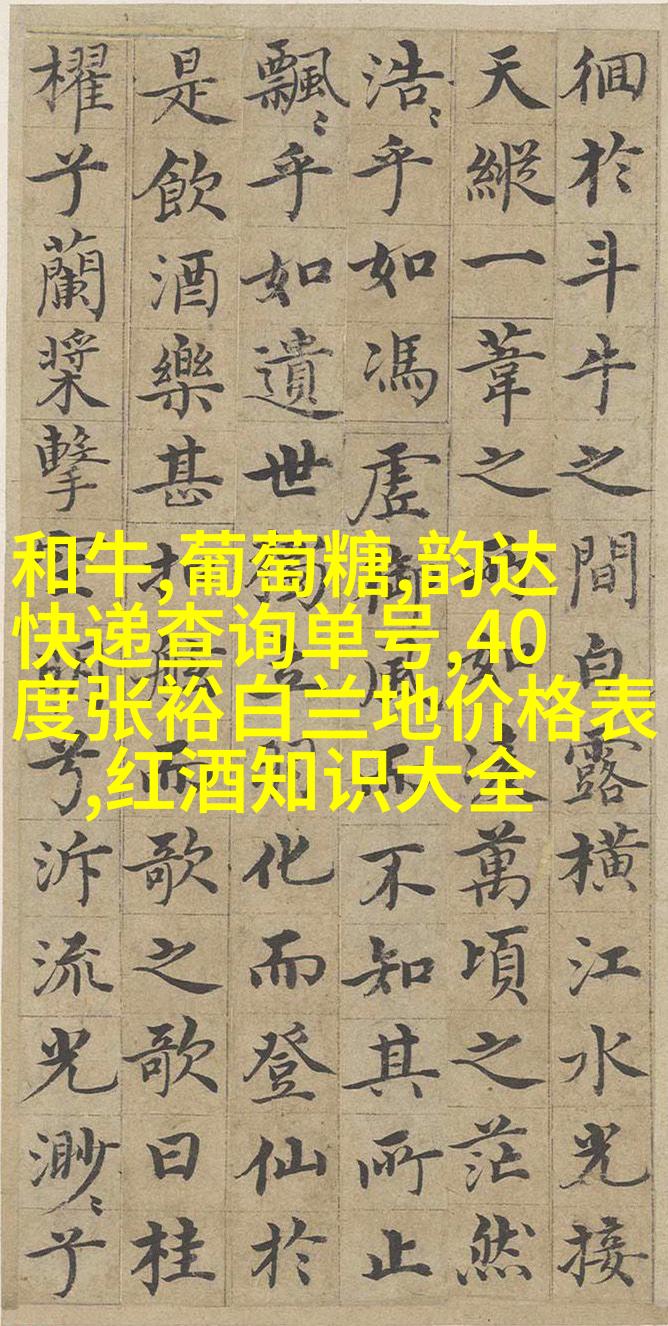 徊於斗牛之間白露橫江水光接
天縱一葦之所如凌萬頃之茫然
浩〻乎如馮虛御風而不知其所止
飄〻乎如遺世獨立羽化而登仙於
是飲酒樂甚扣舷而歌之歌曰桂
櫂兮蘭槳擊空明兮泝流光渺〻兮
和牛,葡萄糖,韵达
快递查询单号,40
度张裕白兰地价格表
,红酒知识大全